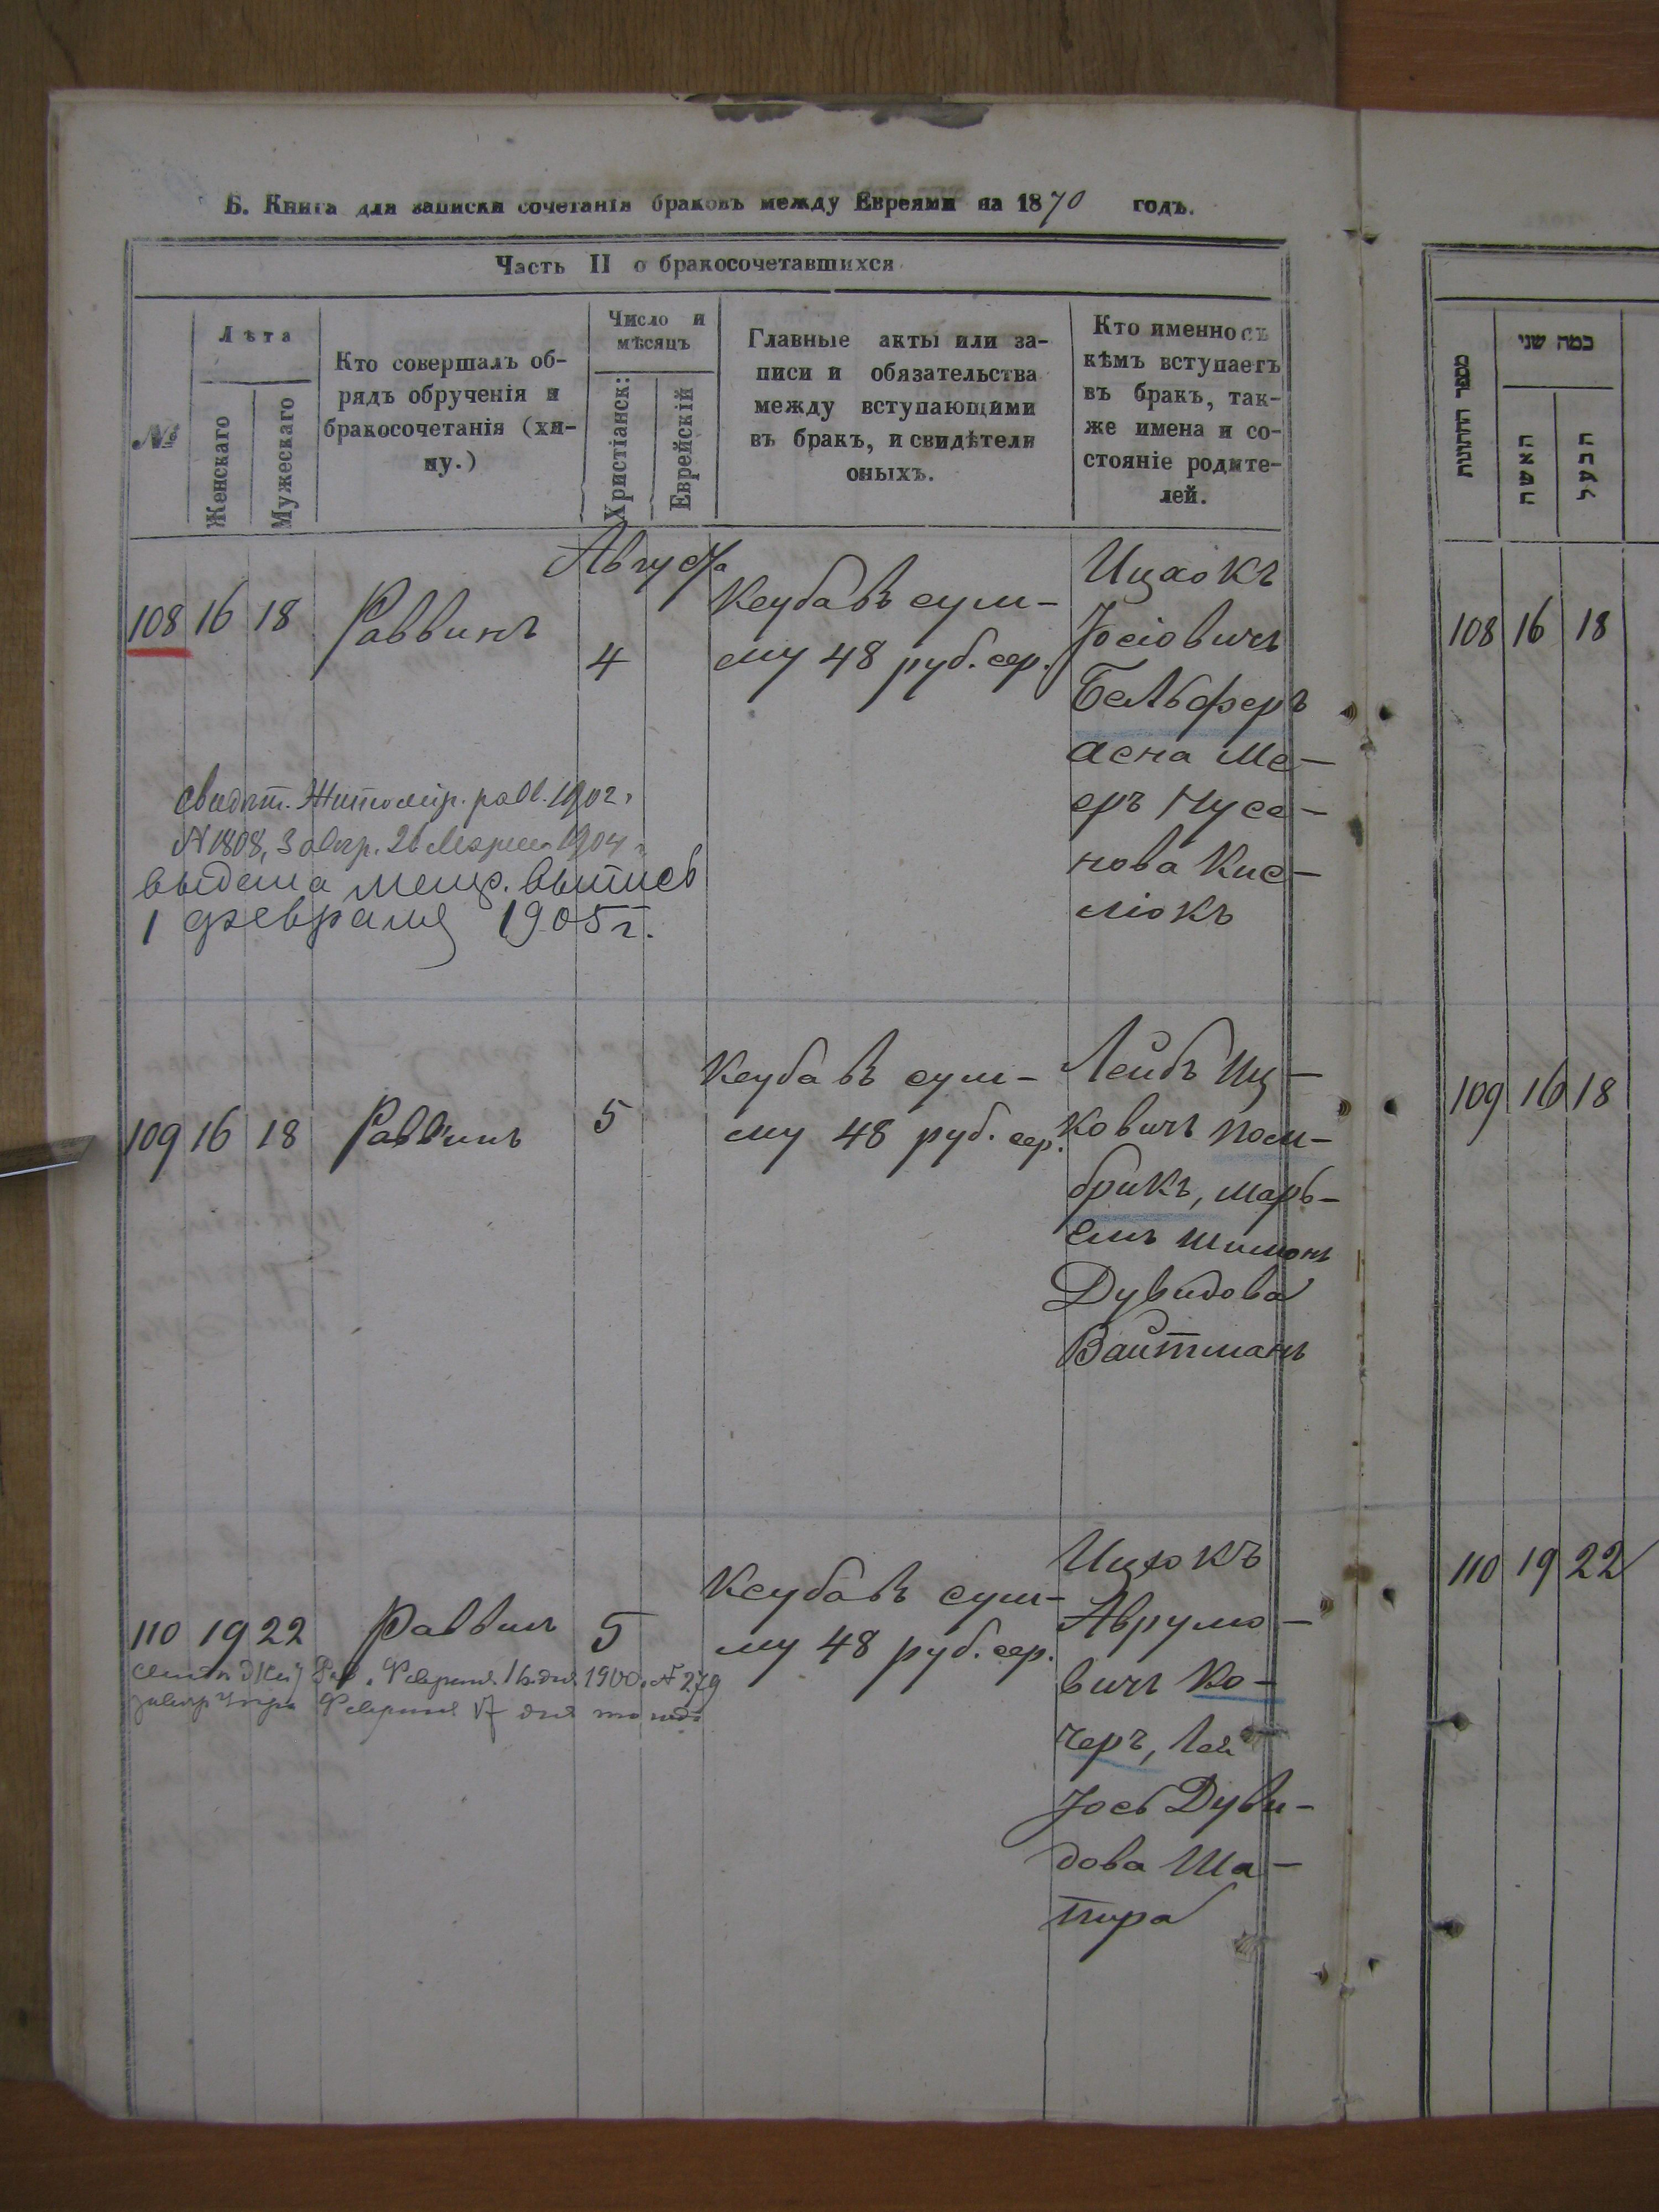 Б. Книга для записки сочетанія браковъ между Евреями на 1870 годъ.
Часть II о бракосочетавшихся
№
Лѣта
Женскаго
Мужескаго
Кто совершалъ об-
рядъ обрученія и
бракосочетанія (хи-
пу.)
Число и
мѣсяцъ
Христіанск:
Еврейскій
Главные акты или за-
писи и обязательства
между вступающими
въ бракъ, и свидѣтели
оныхъ.
Кто именно съ
кѣмъ вступаетъ
въ бракъ, так-
же имена и со-
стояніе родите-
лей.
Августа
108 16 18 Раввинъ 4
Ксуба въ сум-
му 48 руб. сер.
Ицхокъ
Іосіовичъ
Бельферъ
асна Ме-
еръ Нусе-
нова Кис-
люкъ
свидѣт. Житомір. равв. 1902 г.
№ 1808, 3 26 Марта 1904 г.
выдана выпись
1 февраля 1905 г.
109 16 18 Раввинъ 5
Ксуба въ сум-
му 48 руб. сер.
Лейбъ Иц-
ковичъ Пом-
брикъ, Марь-
емъ Шимонъ
Дувидова
Вайтманъ
110 19 22 Раввинъ 5
Ксуба въ сум-
му 48 руб. сер.
Ицхокъ
Аврумо-
вичъ Ко-
черъ, Лея
Іось Дуви-
дова Ша-
пира
Рав. Февраля 16 дня 1900 № 279
Февраля 17 дня
מספר החתונות
כמה שני
האשה
הבעל
108 16 18
109 16 18
110 19 22